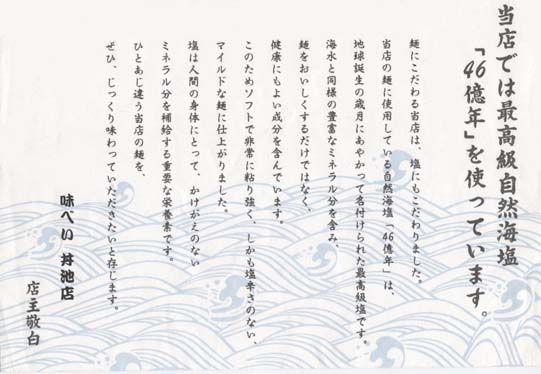 当店では最高級自然海塩
「46億年」を使っています。
麺にこだわる当店は、塩にもこだわりました。
当店の麺に使用している自然海塩「46億年」は、
地球誕生の歳月にあやかって名付けられた最高級塩です。
海水と同様の豊富なミネラル分を含み、
麺をおいしくするだけではなく、
健康にもよい成分を含んでいます。
このためソフトで非常に粘り強く、しかも塩辛さのない、
マイルドな麺に仕上がりました。
塩は人間の身体にとって、かけがえのない
ミネラル分を補給する重要な栄養素です。
ひとあじ違う当店の麺を、
ぜひ、じっくり味わっていただきたいと存じます。
味べい 丼池店
店主敬白